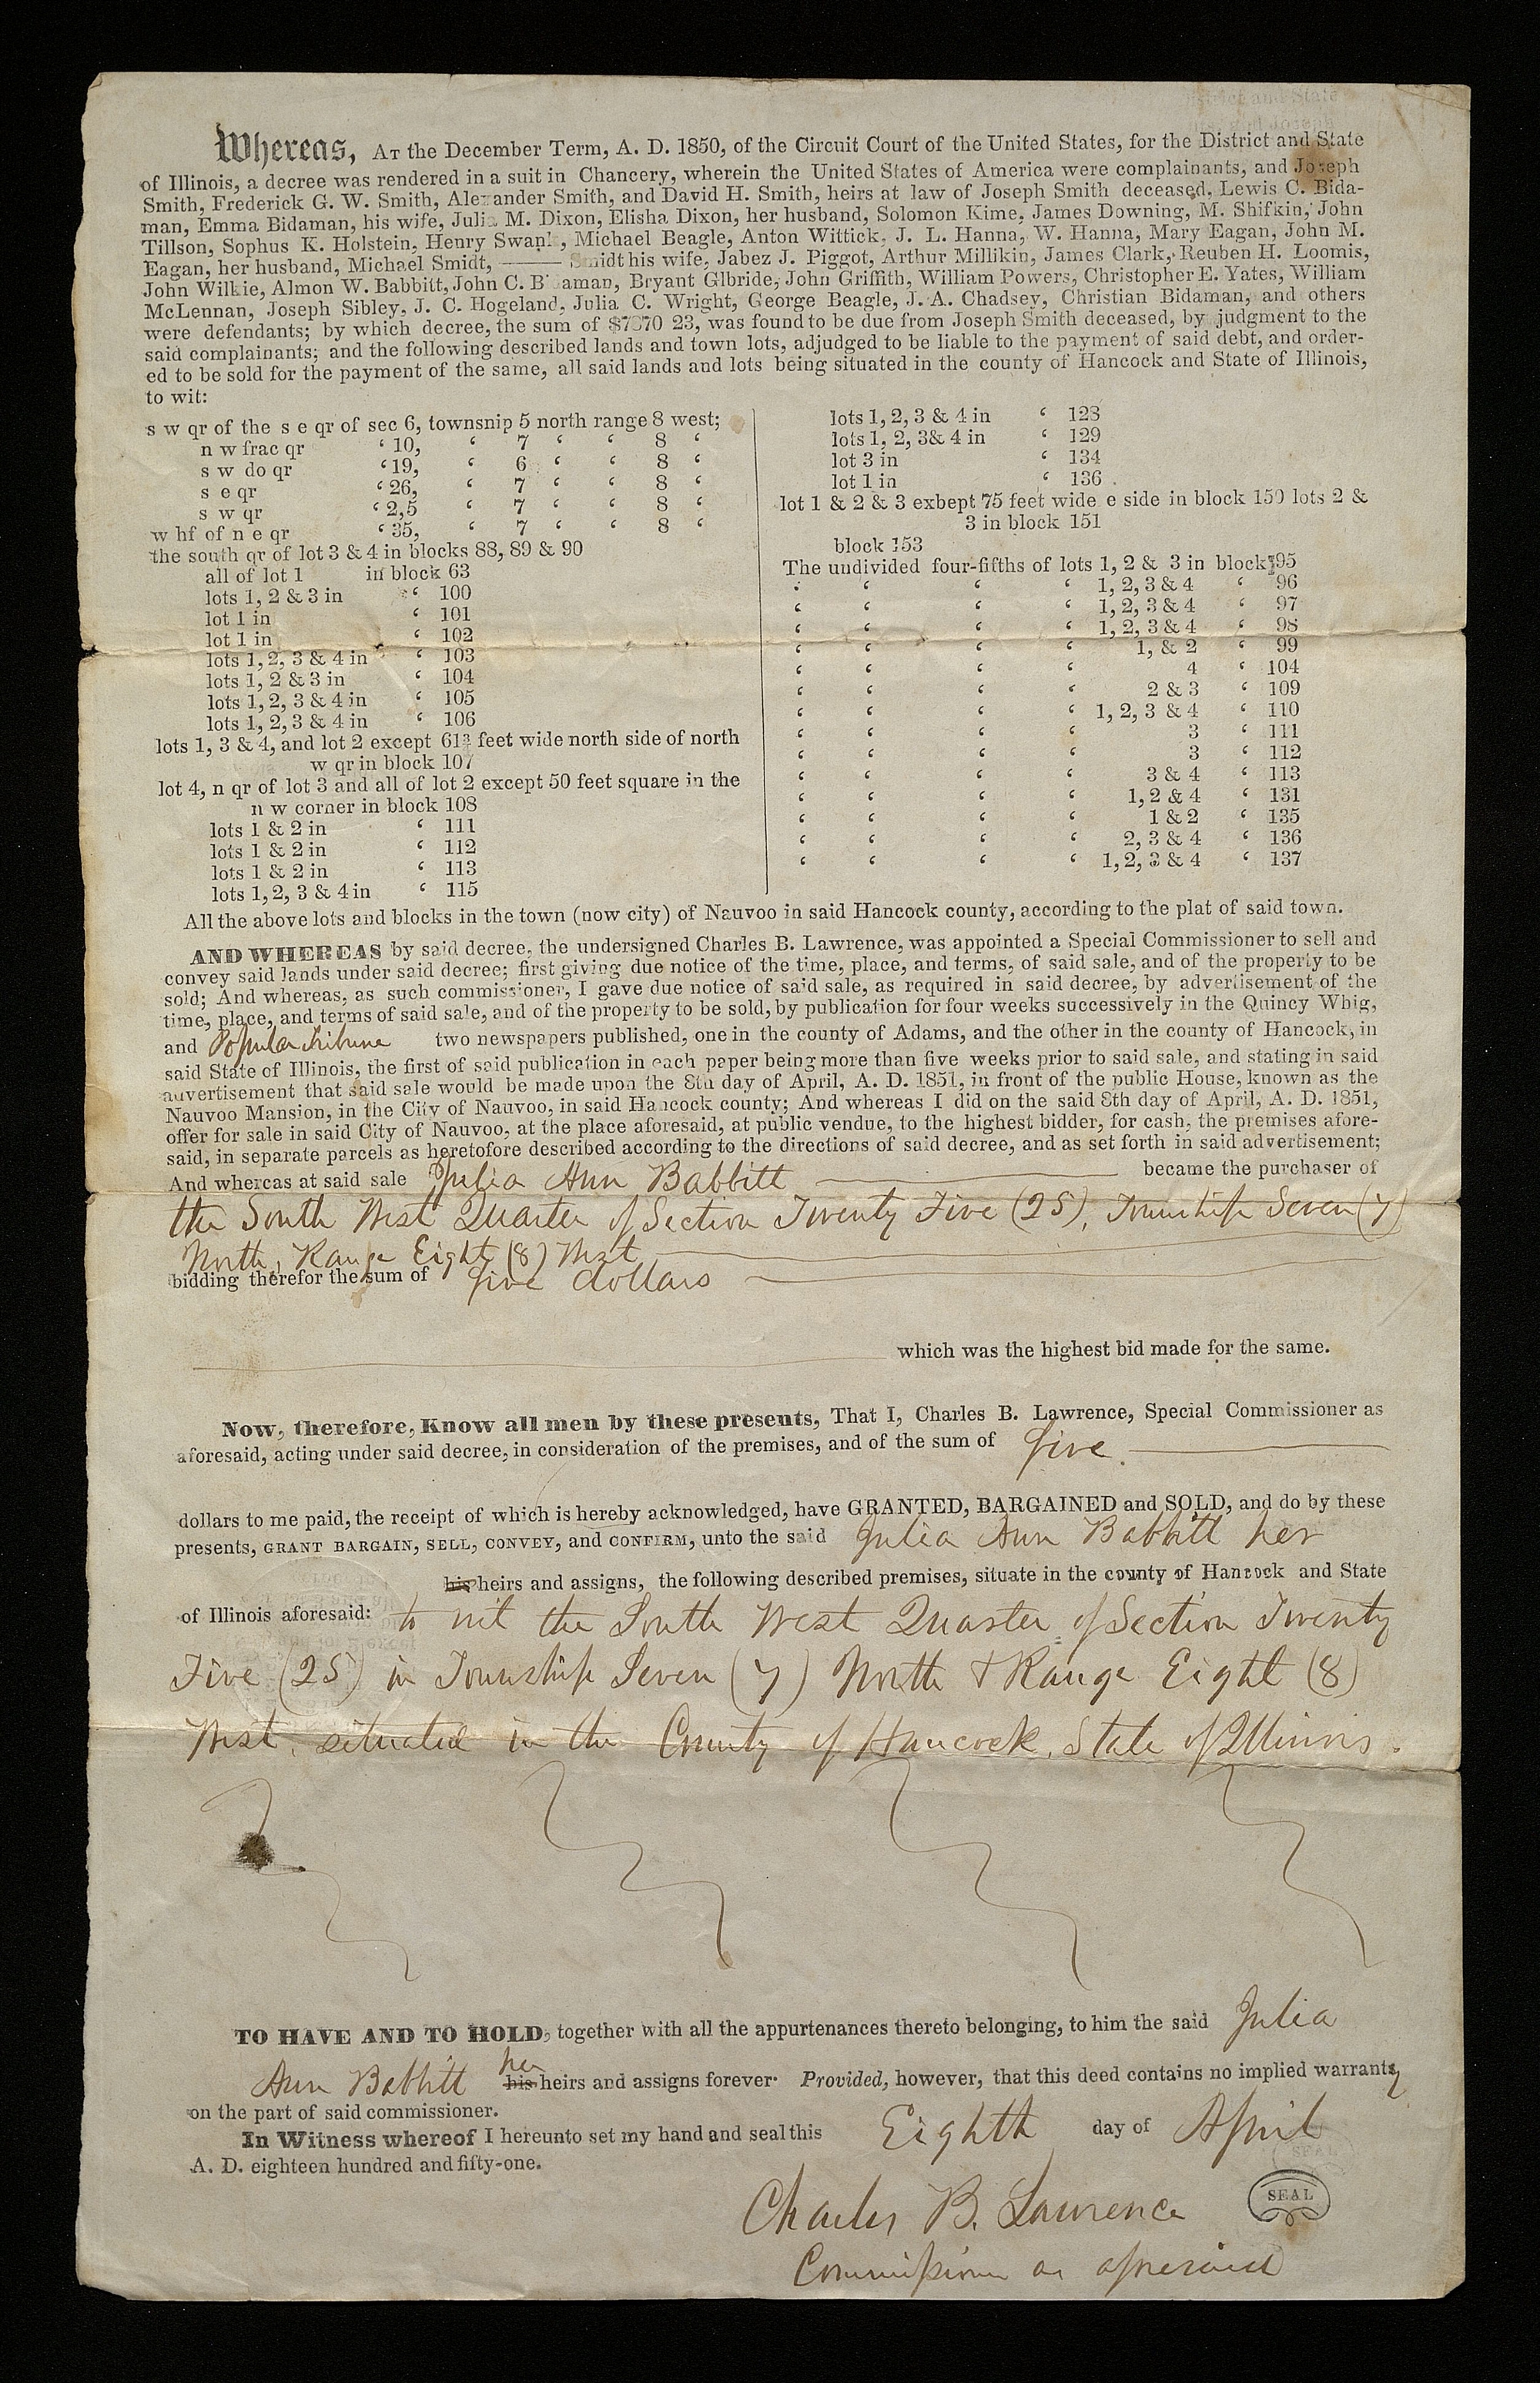 Whereas, AT the December Term, A. D. 1850, of the Circuit Court of the United States, for the District and State
of Illinois, a decree was rendered in a suit in Chancery, wherein the United States of America were complainants, and Joseph
Smith, Frederick G. W. Smith, Alexander Smith, and David H. Smith, heirs at law of Joseph Smith deceased, Lewis C. Bida-
man, Emma Bidaman, his wife, Julia M. Dixon, Elisha Dixon, her husband, Solomon Kime, James Downing, M. Shifkin, John
Tillson, Sophus K. Holstein, Henry Swank, Michael Beagle, Anton Wittick, J. L. Hanna, W. Hanna, Mary Eagan, John M.
Eagan, her husband, Michael Smidt, ——— Smidt his wife, Jabez J. Piggot, Arthur Millikin, James Clark, Reuben H. Loomis,
John Wilkie, Almon W. Babbitt, John C. Bidaman, Bryant Glbride, John Griffith, William Powers, Christopher E. Yates, William
McLennan, Joseph Sibley, J. C. Hogeland, Julia C. Wright, George Beagle, J. A. Chadsey, Christian Bidaman, and others
were defendants; by which decree, the sum of $7870 23, was found to be due from Joseph Smith deceased, by judgment to the
said complainants; and the following described lands and town lots, adjudged to be liable to the payment of said debt, and order-
ed to be sold for the payment of the same, all said lands and lots being situated in the county of Hancock and State of Illinois,
to wit:
s w qr of the s e qr of sec 6, townsnip 5 north range 8 west;
n w frac qr ‘ 10, ‘ 7 ‘ ‘ 8 ‘
s w do qr ‘ 19, ‘ 6 ‘ ‘ 8 ‘
s e qr ‘ 26, ‘ 7 ‘ ‘ 8 ‘
s w qr ‘ 2,5 ‘ 7 ‘ ‘ 8 ‘
w hf of n e qr ‘ 35, ‘ 7 ‘ ‘ 8 ‘
the south qr of lot 3 & 4 in blocks 88, 89 & 90
all of lot 1 in block 63
lots 1, 2 & 3 in ‘ 100
lot 1 in ‘ 101
lot 1 in ‘ 102
lots 1, 2, 3 & 4 in ‘ 103
lots 1, 2 & 3 in ‘ 104
lots 1, 2, 3 & 4 in ‘ 105
lots 1, 2, 3 & 4 in ‘ 106
lots 1, 3 & 4, and lot 2 except feet wide north side of north
w qr in block 107
lot 4, n qr of lot 3 and all of lot 2 except 50 feet square in the
n w corner in block 108
lots 1 & 2 in ‘ 111
lots 1 & 2 in ‘ 112
lots 1 & 2 in ‘ 113
lots 1, 2, 3 & 4 in ‘ 115
lots 1, 2, 3 & 4 in ‘ 128
lots 1, 2, 3& 4 in ‘ 129
lot 3 in ‘ 134
lot 1 in ‘ 136
lot 1 & 2 & 3 exbept 75 feet wide e side in block 150 lots 2 &
3 in block 151
block 153
The undivided four-fifths of lots 1, 2 & 3 in block 95
‘ ‘ ‘ ‘ 1, 2, 3 & 4 ‘ 96
‘ ‘ ‘ ‘ 1, 2, 3 & 4 ‘ 97
‘ ‘ ‘ ‘ 1, 2, 3 & 4 ‘ 98
‘ ‘ ‘ ‘ 1, & 2 ‘ 99
‘ ‘ ‘ ‘ 4 ‘ 104
‘ ‘ ‘ ‘ 2 & 3 ‘ 109
‘ ‘ ‘ ‘ 1, 2, 3 & 4 ‘ 110
‘ ‘ ‘ ‘ 3 ‘ 111
‘ ‘ ‘ ‘ 3 ‘ 112
‘ ‘ ‘ ‘ 3 & 4 ‘ 113
‘ ‘ ‘ ‘ 1, 2 & 4 ‘ 131
‘ ‘ ‘ ‘ 1 & 2 ‘ 135
‘ ‘ ‘ ‘ 2, 3 & 4 ‘ 136
‘ ‘ ‘ ‘ 1, 2, 3 & 4 ‘ 137
All the above lots and blocks in the town (now city) of Nauvoo in said Hancock county, according to the plat of said town.
AND WHEREAS by said decree, the undersigned Charles B. Lawrence, was appointed a Special Commissioner to sell and
convey said lands under said decree; first giving due notice of the time, place, and terms, of said sale, and of the property to be
sold; And whereas, as such commissioner, I gave due notice of said sale, as required in said decree, by advertisement of the
time, place, and terms of said sale, and of the property to be sold, by publication for four weeks successively in the Quincy Whig,
and Popular Tribune two newspapers published, one in the county of Adams, and the other in the county of Hancock, in
said State of Illinois, the first of said publication in each paper being more than five weeks prior to said sale, and stating in said
advertisement that said sale would be made upon the 8th day of April, A. D. 1851, in front of the public House, known as the
Nauvoo Mansion, in the City of Nauvoo, in said Hancock county; And whereas I did on the said 8th day of April, A. D. 1851,
offer for sale in said City of Nauvoo, at the place aforesaid, at public vendue, to the highest bidder, for cash, the premises afore-
said, in separate parcels as heretofore described according to the directions of said decree, and as set forth in said advertisement;
And whereas at said sale Julia Ann Babbitt became the purchaser of
the South West Quarter of Section Twenty Five (25), Township Seven (7)
North, Range Eight (8) West
bidding therefor the sum of five dollars
which was the highest bid made for the same.
Now, therefore, Know all men by these presents, That I, Charles B. Lawrence, Special Commissioner as
aforesaid, acting under said decree, in consideration of the premises, and of the sum of five
dollars to me paid, the receipt of which is hereby acknowledged, have GRANTED, BARGAINED and SOLD, and do by these
presents, GRANT BARGAIN, SELL, CONVEY, and CONFIRM, unto the said Julia Ann Babbitt her
his heirs and assigns, the following described premises, situate in the county of Hancock and State
of Illinois aforesaid: to wit the South West Quarter of Section Twenty
Five (25) in Township Seven (7) North & Range Eight (8)
West, situated in the County of Hancock, State of Illinois.
TO HAVE AND TO HOLD, together with all the appurtenances thereto belonging, to him the said Julia
Ann Babbitt her his heirs and assigns forever. Provided, however, that this deed contains no implied warranty
on the part of said commissioner.
In Witness whereof I hereunto set my hand and seal this Eighth day of April
A. D. eighteen hundred and fifty-one.
Charles B. Lawrence SEAL
Commissioner as aforesaid